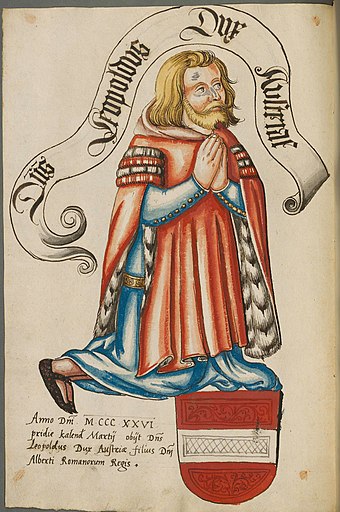 Dns Leopoldus Dux Austriae
Anno Dm̄ M CCC XXVI
pridie kalend Martij obijt Dns
Leopoldus Dux Austriæ filius Dm̄
Alberti Romanorum Regis.